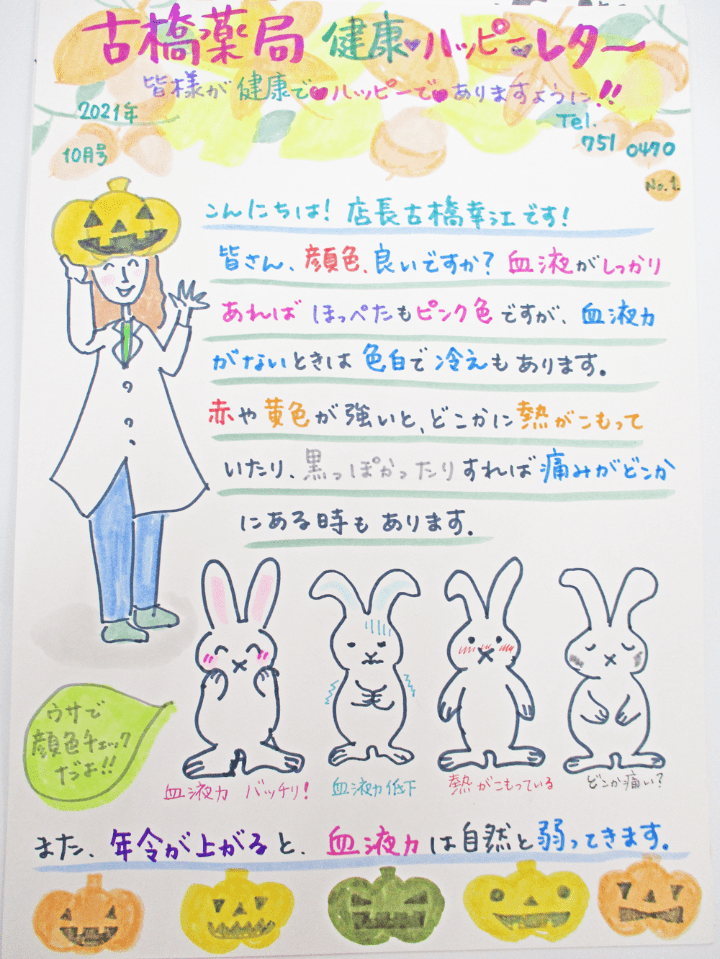 古橋薬局 健康♥ハッピー♥レター
皆様が健康で♥ハッピーで♥ありますように!!
2021年
10月号
Tel.
751 0470
No.1
こんにちは! 店長古橋幸江です!
皆さん、顔色、良いですか? 血液がしっかり
あれば ほっぺたもピンク色ですが、血液力
がないときは 色白で冷えもあります。
赤や黄色が強いと、どこかに熱がこもって
いたり、黒っぽかったりすれば痛みがどこか
にある時もあります。
ウサで
顔色チェック
だよ!!
血液力 バッチリ!
血液力低下
熱がこもっている
どこか痛い?
また、年令が上がると、血液力は自然と弱ってきます。